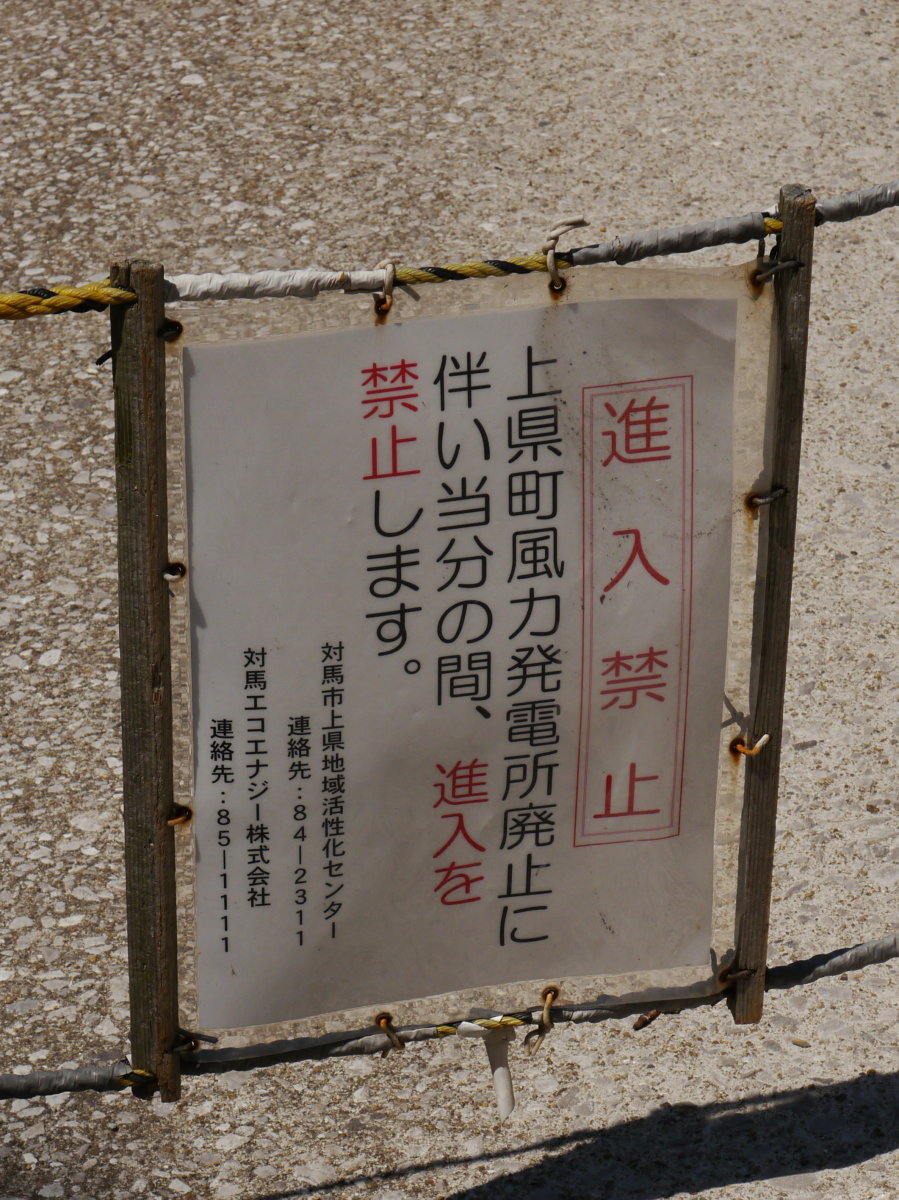 進入禁止
上県町風力発電所廃止に
伴い当分の間、進入を
禁止します。
対馬市上県地域活性化センター
連絡先：８４ー２３１１
対馬エコエナジー株式会社
連絡先：８５ー１１１１